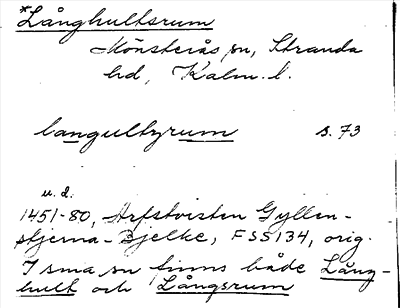 *Långhultsrum
Mönsterås sn, Stranda
hd, Kalm. l.
langultzrum s. 73
u. d.
1451-80, Arfstvisten Gyllen-
stjerna-Bjelke, FSS134, orig.
I sma sn finns både Lång-
hult och Långsrum